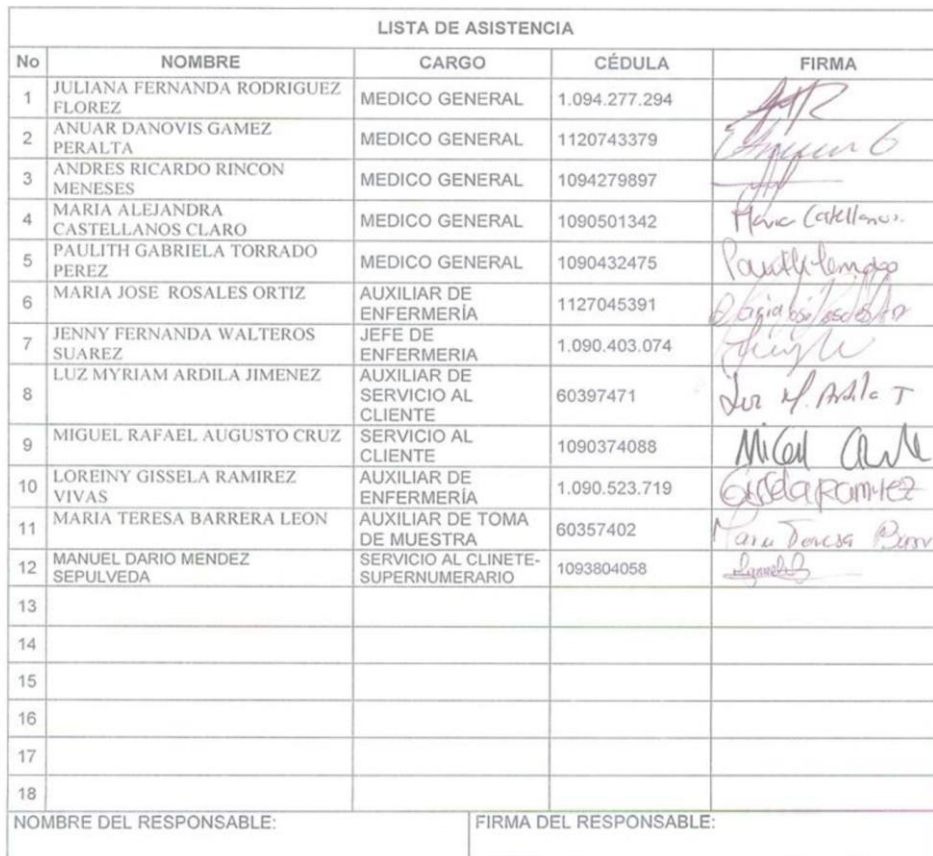 LISTA DE ASISTENCIA
No NOMBRE CARGO CÉDULA FIRMA
1 JULIANA FERNANDA RODRIGUEZ FLOREZ MEDICO GENERAL 1.094.277.294
2 ANUAR DANOVIS GAMEZ PERALTA MEDICO GENERAL 1120743379
3 ANDRES RICARDO RINCON MENESES MEDICO GENERAL 1094279897
4 MARIA ALEJANDRA CASTELLANOS CLARO MEDICO GENERAL 1090501342
5 PAULITH GABRIELA TORRADO PEREZ MEDICO GENERAL 1090432475
6 MARIA JOSE ROSALES ORTIZ AUXILIAR DE ENFERMERÍA 1127045391
7 JENNY FERNANDA WALTEROS SUAREZ JEFE DE ENFERMERIA 1.090.403.074
8 LUZ MYRIAM ARDILA JIMENEZ AUXILIAR DE SERVICIO AL CLIENTE 60397471 Luz M. Ardila J
9 MIGUEL RAFAEL AUGUSTO CRUZ SERVICIO AL CLIENTE 1090374088
10 LOREINY GISSELA RAMIREZ VIVAS AUXILIAR DE ENFERMERÍA 1.090.523.719 Gissela Ramirez
11 MARIA TERESA BARRERA LEON AUXILIAR DE TOMA DE MUESTRA 60357402 Maria Teresa
12 MANUEL DARIO MENDEZ SEPULVEDA SERVICIO AL CLINETE-SUPERNUMERARIO 1093804058
13
14
15
16
17
18
NOMBRE DEL RESPONSABLE: FIRMA DEL RESPONSABLE: